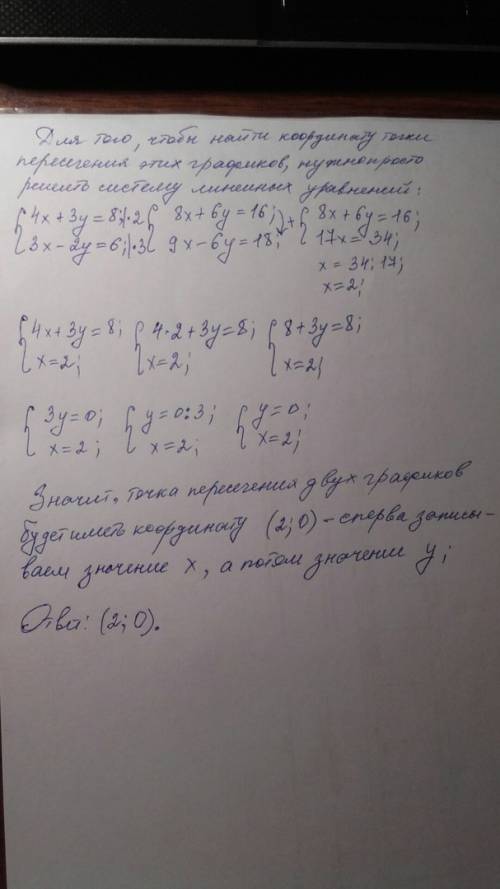 Для того, чтобы найти координату точки
пересечения этих графиков, нужно просто
решить систему линейных уравнений:
{4x + 3y = 8; |·2 {8x + 6y = 16; + {8x + 6y = 16;
{3x − 2y = 6; |·3 {9x − 6y = 18; {17x = 34;
x = 34:17;
x = 2;
{4x + 3y = 8; {4·2 + 3y = 8; {8 + 3y = 8;
{x = 2; {x = 2; {x = 2;
{3y = 0; {y = 0:3; {y = 0;
{x = 2; {x = 2; {x = 2;
Значит, точка пересечения двух графиков
будет иметь координату (2; 0) – сперва записы-
ваем значение x, а потом значение y;
Ответ: (2; 0).